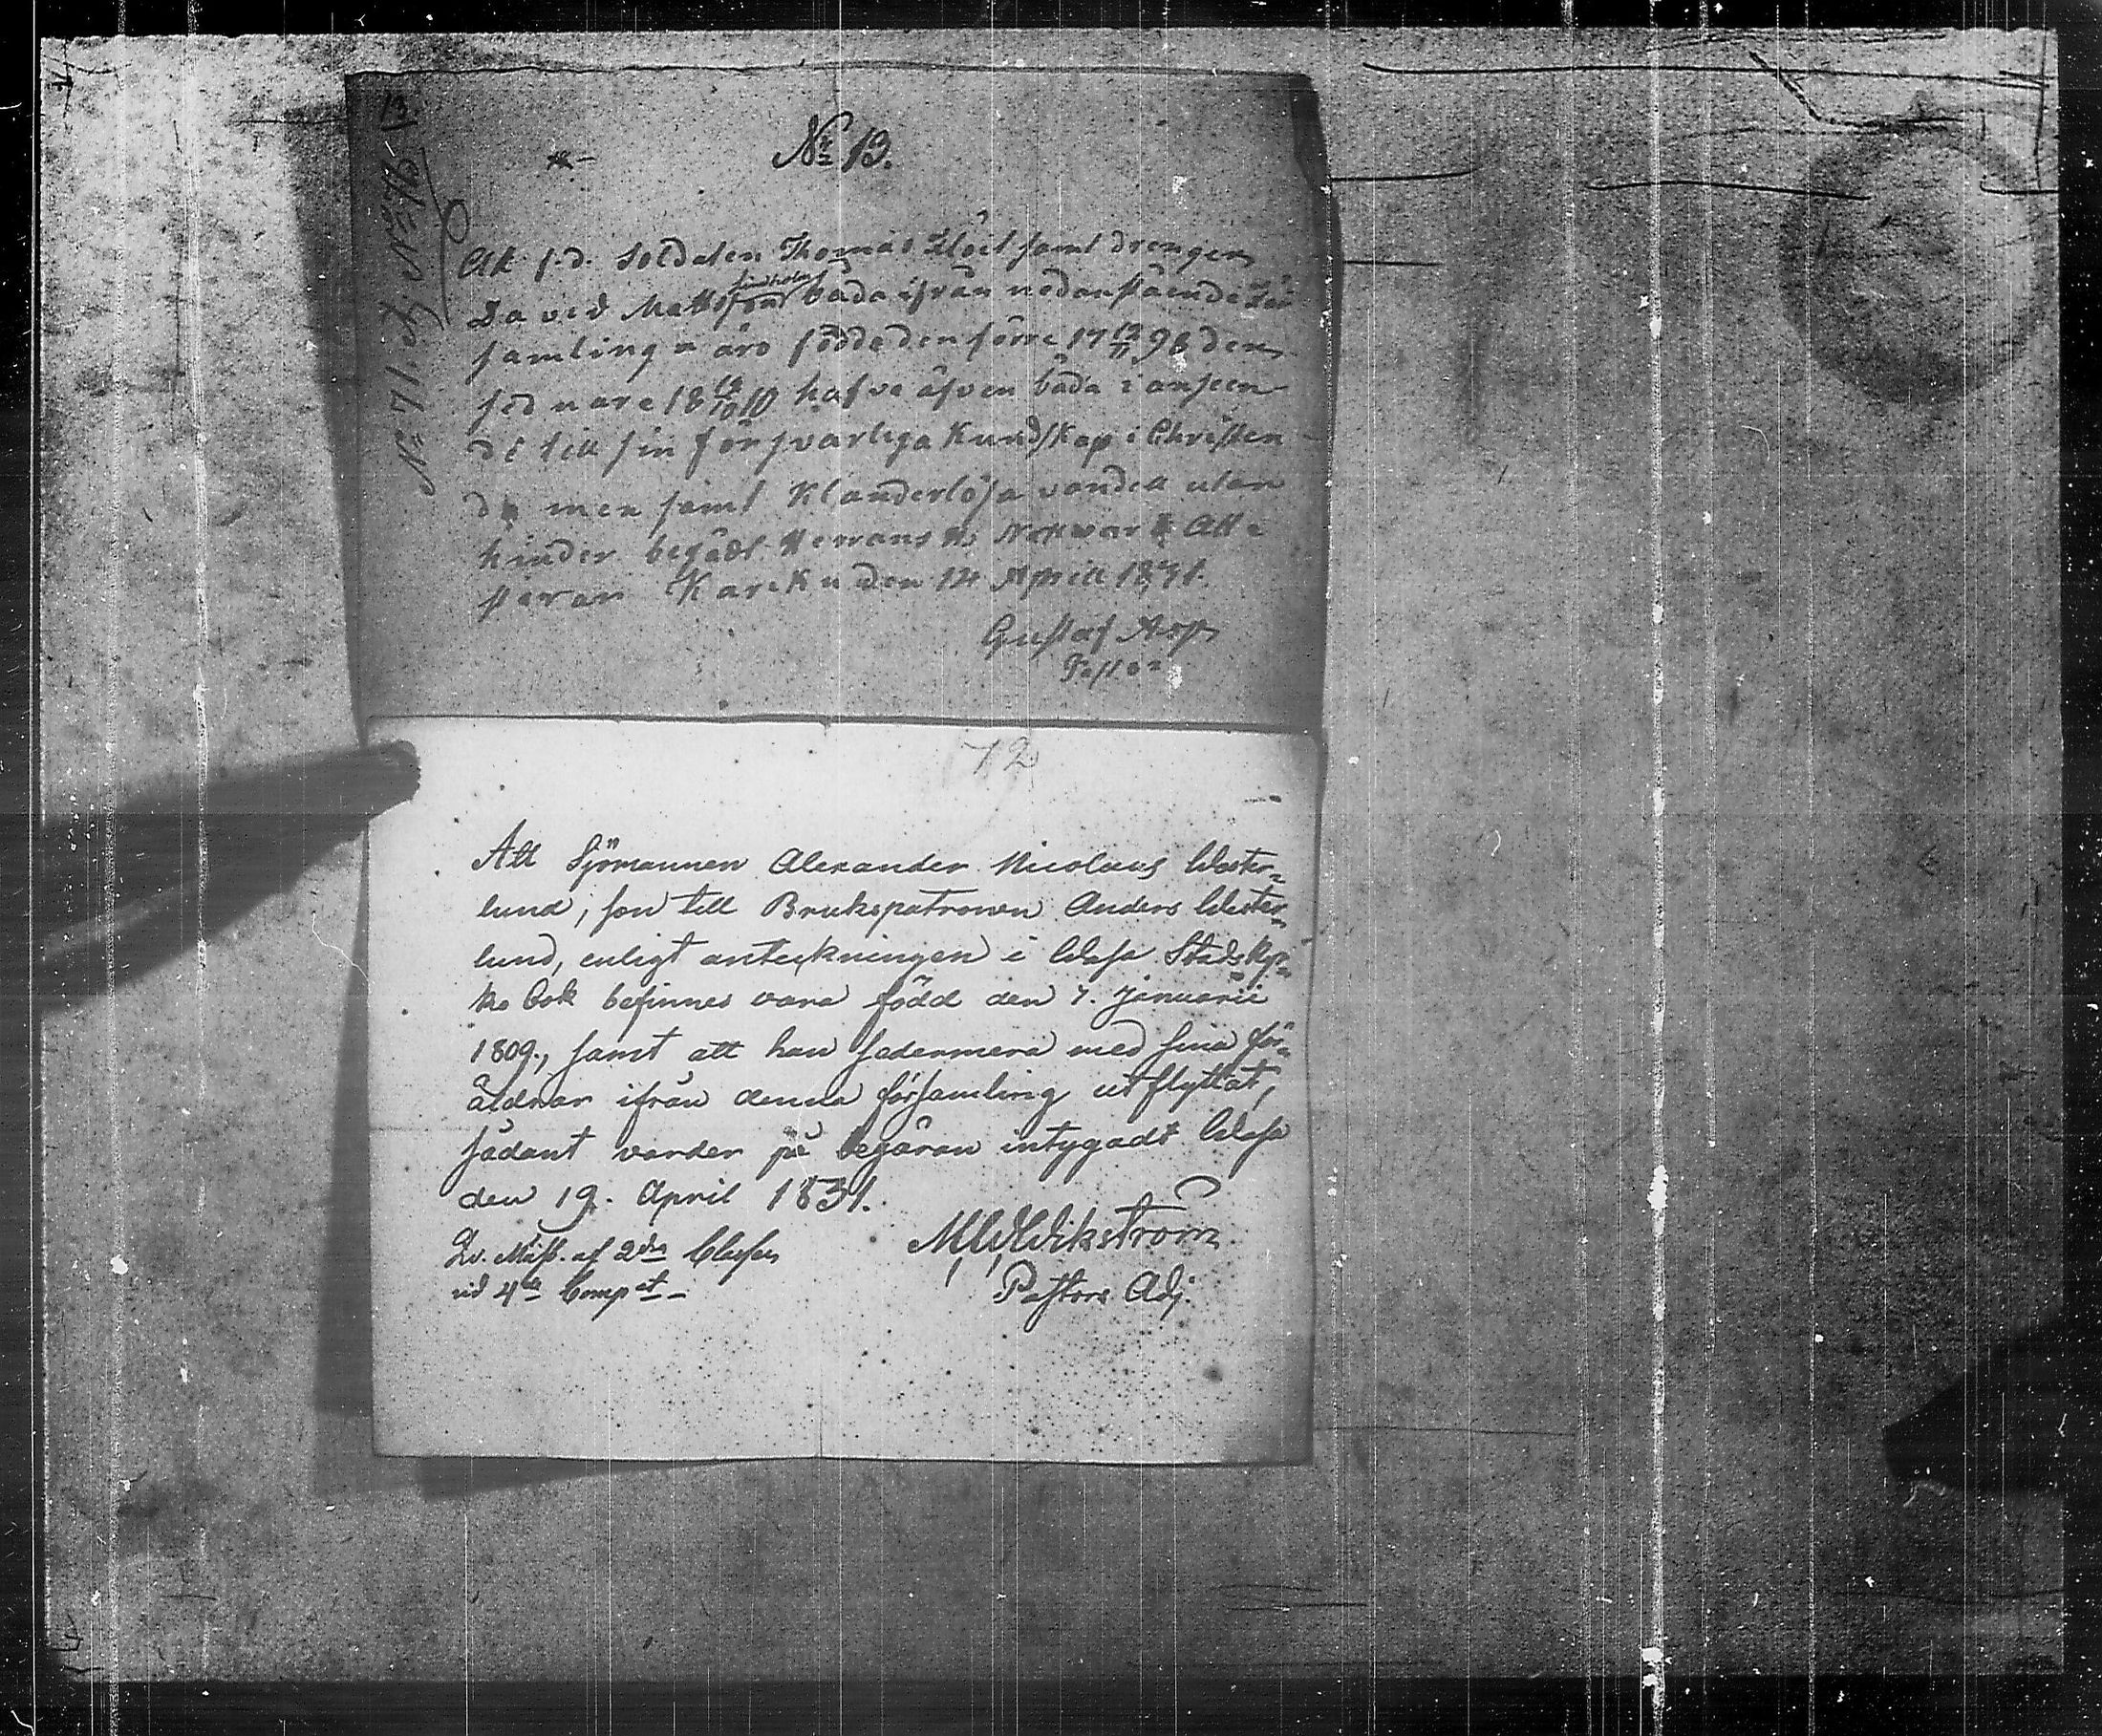 Nr 13.
Att f.d. Soldaten Thomas Flöit samt drengen
Lindholm
David Mattsson båda ifrån nedanstående För
samling äro födde den förre 17 12/11 98 den
sednare 18 10/10 hafve äfven båda i anseen-
de till sin försvarliga Kundskap i Christen-
domen samt Klanderlösa vandell utan
hinder begådt Herrans H. Nattward Atte
sterar Karcku den 14 April 1831.
Gustaf Asp
Pastor
72
Att Sjömannen Alexander Nicolaus Wester-
lund, son till Brukspatronen Anders Wester-
lund, enligt anteckningen i Wasa Stads Kyr-
ko bok befinnes vara född den 7. Januarii
1809., samt att han sedermera med sina för-
äldrar ifrån denna församling utflyttat,
sådant varder på begäran intygadt Wasa
den 19. April 1831.
Wikström
Pastors Adj.
af 2dra Classen
vid 4de Comp:t